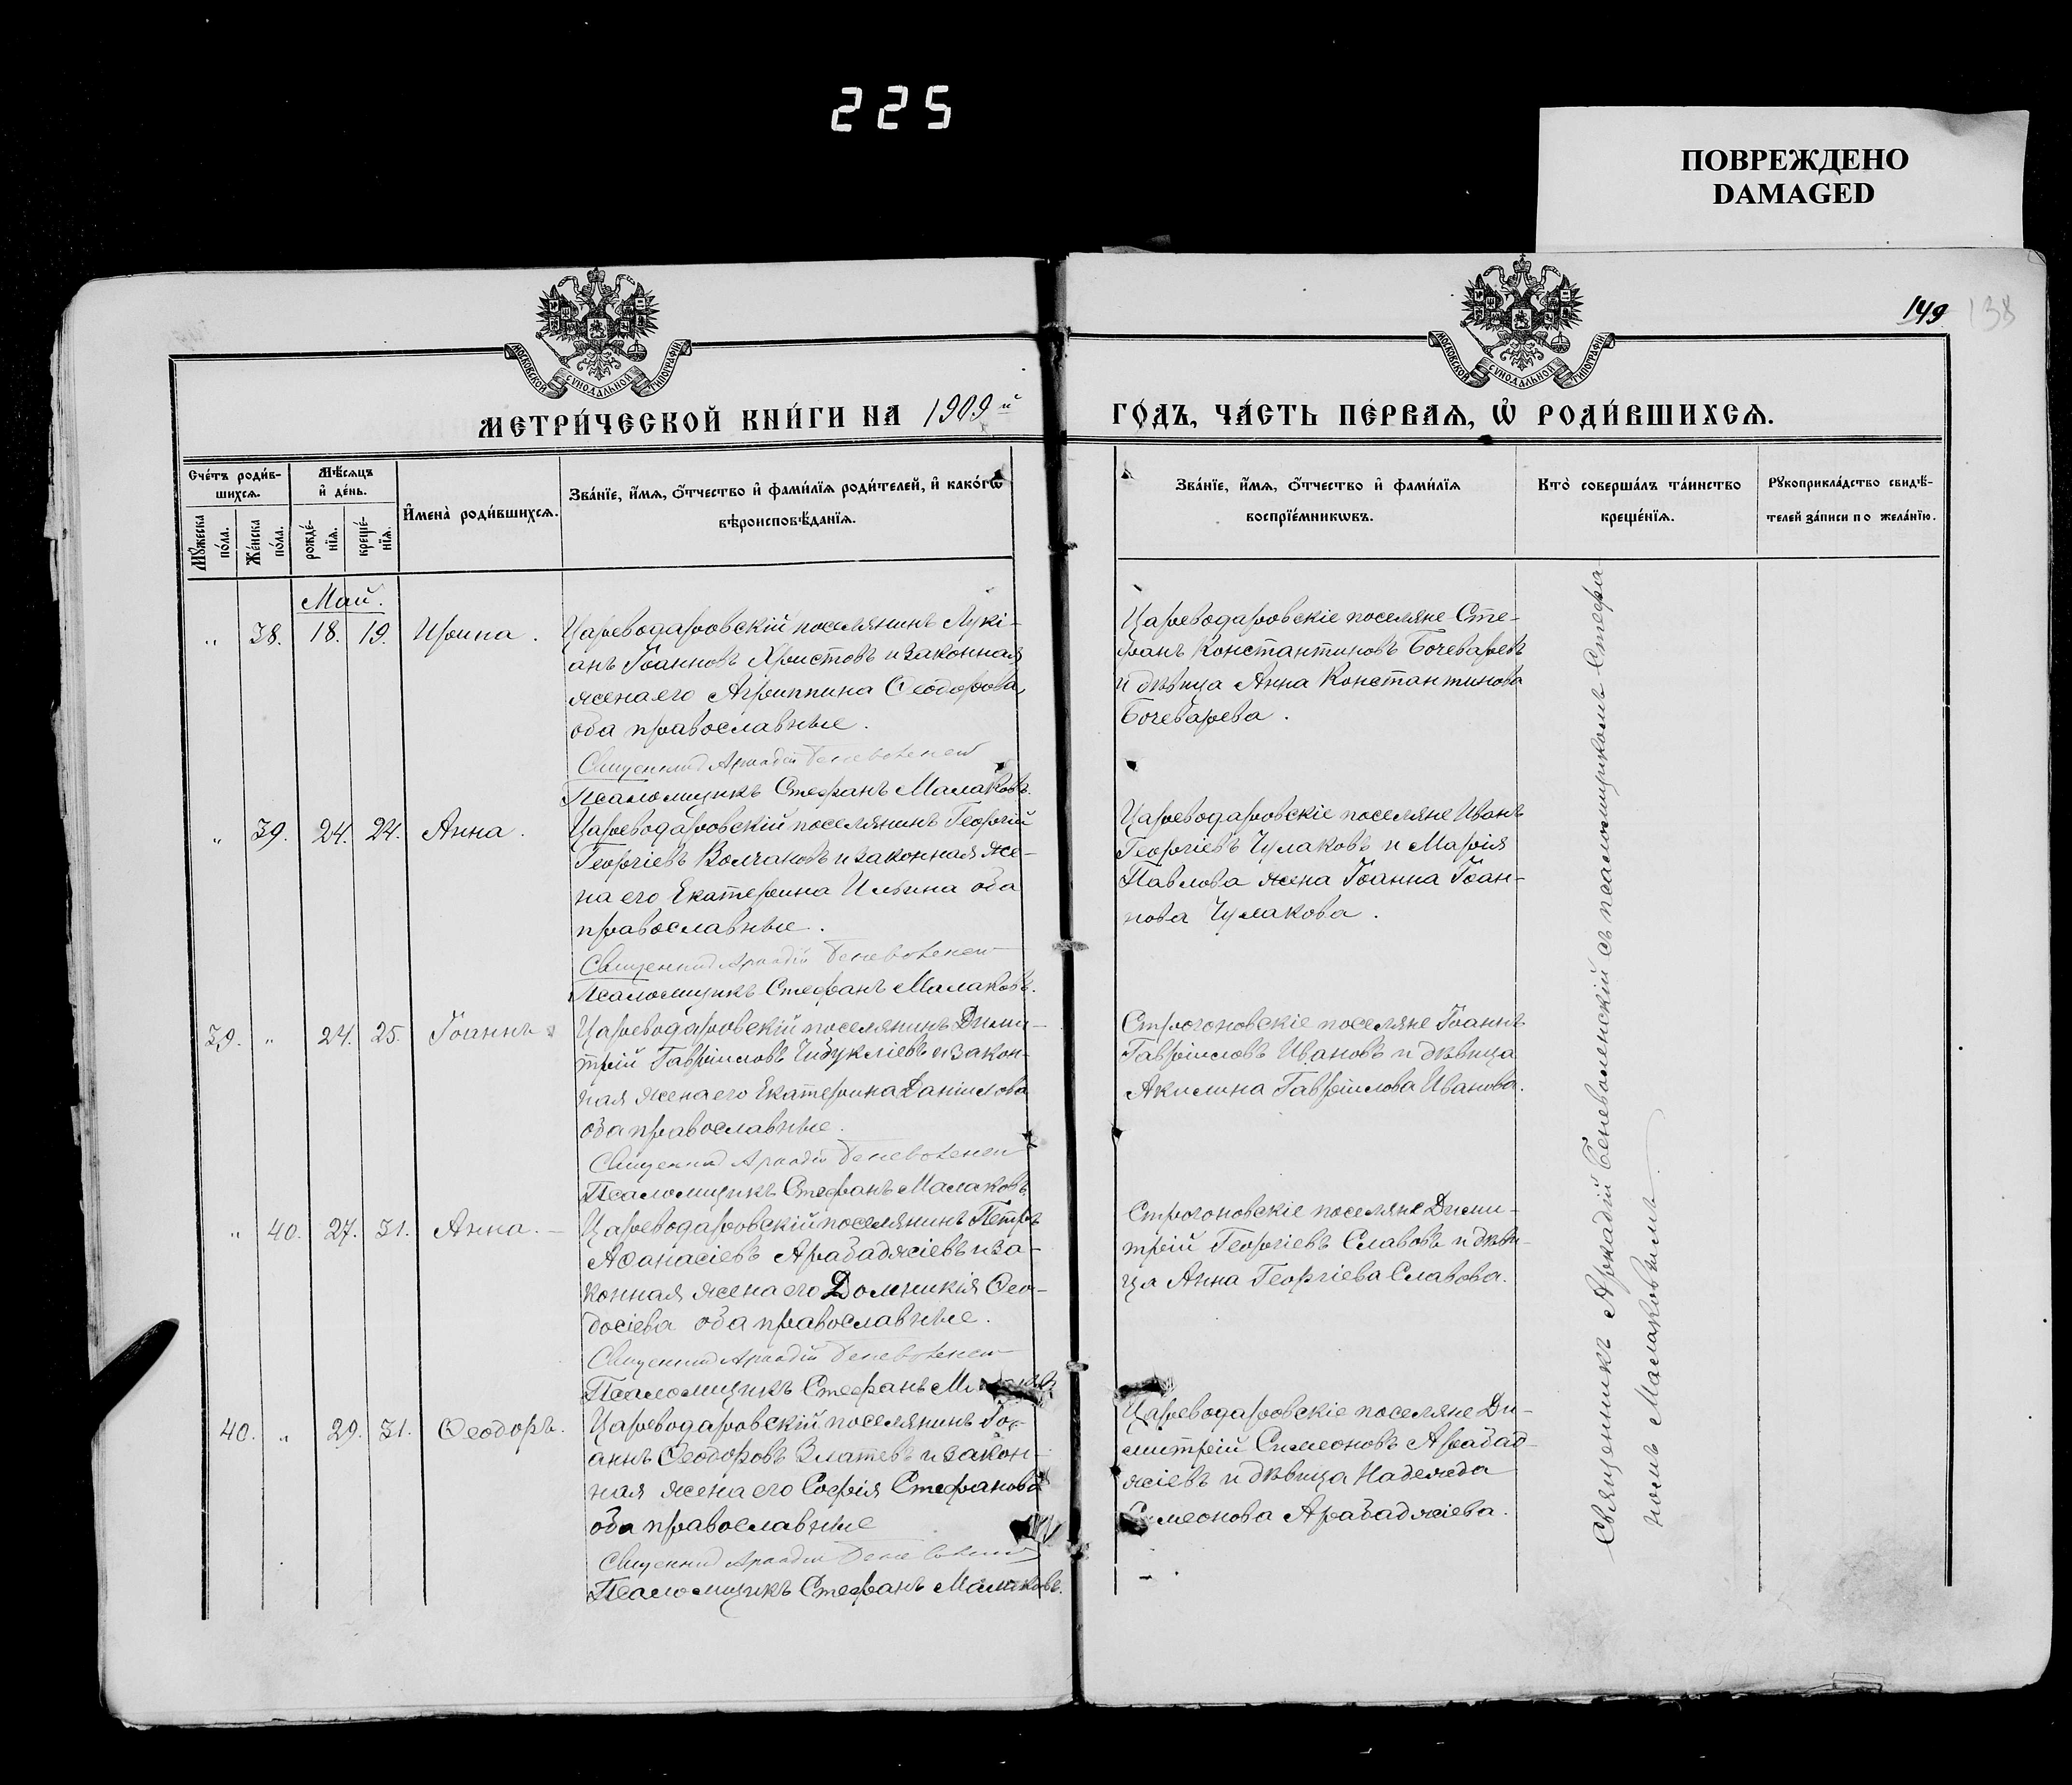 225
ПОВРЕЖДЕНО
DAMAGED
МОСКОВСКОЙ СѴНОДАЛЬНОЙ ТИПОГРАФІИ
МОСКОВСКОЙ СѴНОДАЛЬНОЙ ТИПОГРАФІИ
149 138
МЕТРИ́ЧЕСКОЙ КНИ́ГИ НА 1909 й
ГО́ДЪ, ЧА́СТЬ ПЕ́РВАѦ, Ѡ҆ РОДИ́ВШИХСѦ.
Сче́тъ роди́в-
шихсѧ.
Мꙋ́жеска по́ла.
Же́нска по́ла.
Мѣ́сѧцъ
и҆ де́нь.
рожде́-нїѧ.
креще́-нїѧ.
И҆мена̀ роди́вшихсѧ.
Зва́нїе, и҆́мѧ, ѻ҆́тчество и҆ фами́лїѧ роди́телей, и҆ како́гѡ
вѣроисповѣ́данїѧ.
Зва́нїе, и҆́мѧ, ѻ҆́тчество и҆ фами́лїѧ
воспрїе́мникѡвъ.
Кто̀ соверша́лъ та́инство
креще́нїѧ.
Рꙋкоприкла́дство свидѣ́-
телей за́писи по жела́нїю.
Май.
„ 38. 18. 19. Ирина.
Цареводаровскій поселянинъ Лукі-
анъ Іоанновъ Христовъ и законная
жена его Агриппина Ѳеодорова,
оба православные.
Священникъ Аркадій Беневоленскій
Псаломщикъ Стефанъ Малаковъ.
Цареводаровскіе поселяне Сте-
фанъ Константиновъ Бочеваревъ
и дѣвица Анна Константинова
Бочеварева.
„ 39. 24. 24. Анна.
Цареводаровскій поселянинъ Георгій
Георгіевъ Волчановъ и законная же-
на его Екатерина Ильина оба
православные.
Священникъ Аркадій Беневоленскій
Псаломщикъ Стефанъ Малаковъ.
Цареводаровскіе поселяне Иванъ
Георгіевъ Чулаковъ и Марія
Павлова жена Іоанна Іоан-
нова Чулакова.
39. „ 24. 25. Іоаннъ
Цареводаровскій поселянинъ Дими-
трій Гавріиловъ Чибукліевъ и закон-
ная жена его Екатерина Даніилова
оба православные.
Священникъ Аркадій Беневоленскій
Псаломщикъ Стефанъ Малаковъ
Строгоновскіе поселяне Іоаннъ
Гавріиловъ Ивановъ и дѣвица
Акилина Гавріилова Иванова.
„ 40. 27. 31. Анна. –
Цареводаровскій поселянинъ Петръ
Аѳанасіевъ Арабаджіевъ и за-
конная жена его Домникія Ѳео-
досіева оба православные.
Священникъ Аркадій Беневоленскій
Псаломщикъ Стефанъ
Строгоновскіе поселяне Дими-
трій Георгіевъ Славовъ и дѣви-
ца Анна Георгіева Славова.
40. „ 29. 31. Ѳеодоръ.
Цареводаровскій поселянинъ Іо-
аннъ Ѳеодоровъ Златевъ и закон-
ная жена его Софія Стефанова
оба православные
Священникъ Аркадій Беневоленскій
Псаломщикъ Стефанъ Малаковъ.
Цареводаровскіе поселяне Ди-
митрій Симеоновъ Арабад-
жіевъ и дѣвица Надежда
Симеонова Арабаджіева.
Священникъ Аркадій Беневоленскій съ псаломщикомъ Стефа-
номъ Малаковымъ.